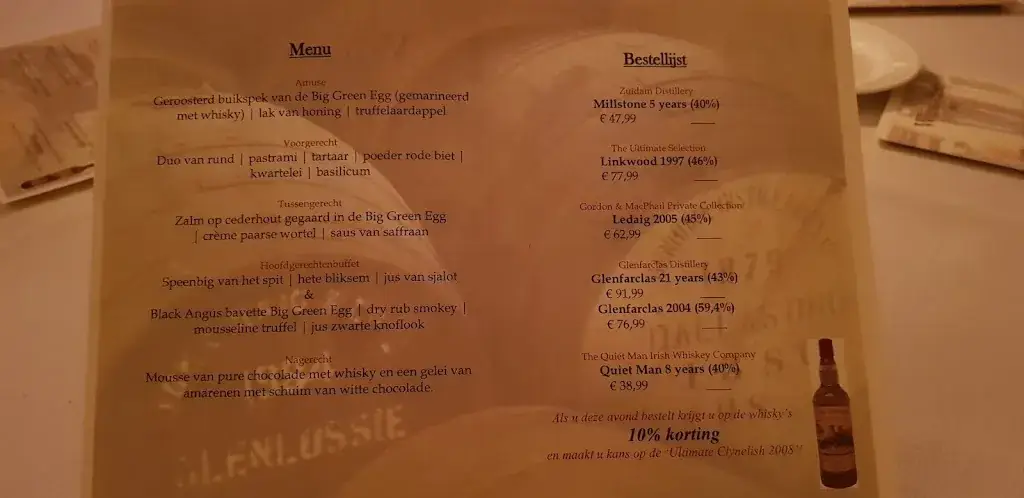 Menu
Amuse
Geroosterd buikspek van de Big Green Egg (gemarineerd
met whisky) | lak van honing | truffelaardappel
Voorgerecht
Duo van rund | pastrami | tartaar | poeder rode biet |
kwartelei | basilicum
Tussengerecht
Zalm op cederhout gegaard in de Big Green Egg
| crème paarse wortel | saus van saffraan
Hoofdgerechtenbuffet
Speenbig van het spit | hete bliksem | jus van sjalot
&
Black Angus bavette Big Green Egg | dry rub smokey |
mousseline truffel | jus zwarte knoflook
Nagerecht
Mousse van pure chocolade met whisky en een gelei van
amarenen met schuim van witte chocolade.
GLENLOSSIE
Bestellijst
Zuidam Distillery
Millstone 5 years (40%)
€ 47,99
The Ultimate Selection
Linkwood 1997 (46%)
€ 77,99
Gordon & MacPhail Private Collection
Ledaig 2005 (45%)
€ 62,99
Glenfarclas Distillery
Glenfarclas 21 years (43%)
€ 91,99
Glenfarclas 2004 (59,4%)
€ 76,99
The Quiet Man Irish Whiskey Company
Quiet Man 8 years (40%)
€ 38,99
Als u deze avond bestelt krijgt u op de whisky's
10% korting
en maakt u kans op de "Ultimate Clynelish 2008"!